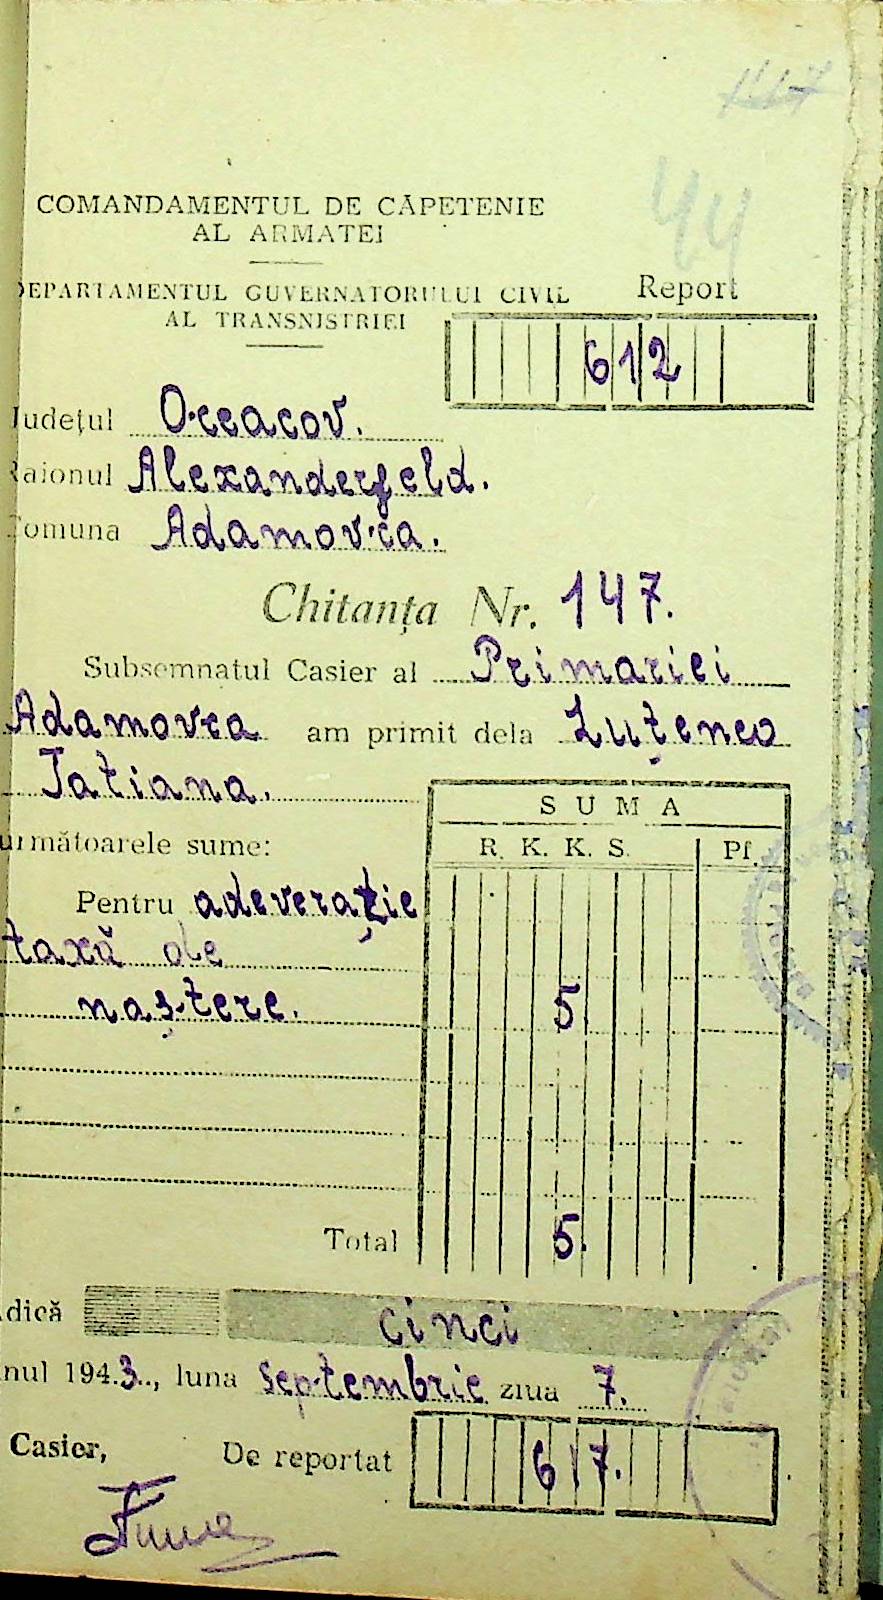 147
44
COMANDAMENTUL DE CĂPETENIE
AL ARMATEI
DEPARTAMENTUL GUVERNATORULUI CIVIL
AL TRANSNISTRIEI
Report
612
Județul Oceacov.
Raionul Alexanderfeld.
Comuna Adamovca.
Chitanța Nr. 147.
Subsemnatul Casier al Primariei
Adamovca am primit dela Luțenco
Tatiana.
SUMA
următoarele sume:
R. K. K. S. Pf.
Pentru adeverație
taxă de
naștere. 5
Total 5.
Adică cinci
Anul 194.3.., luna septembrie ziua 7.
Casier, De reportat 617.